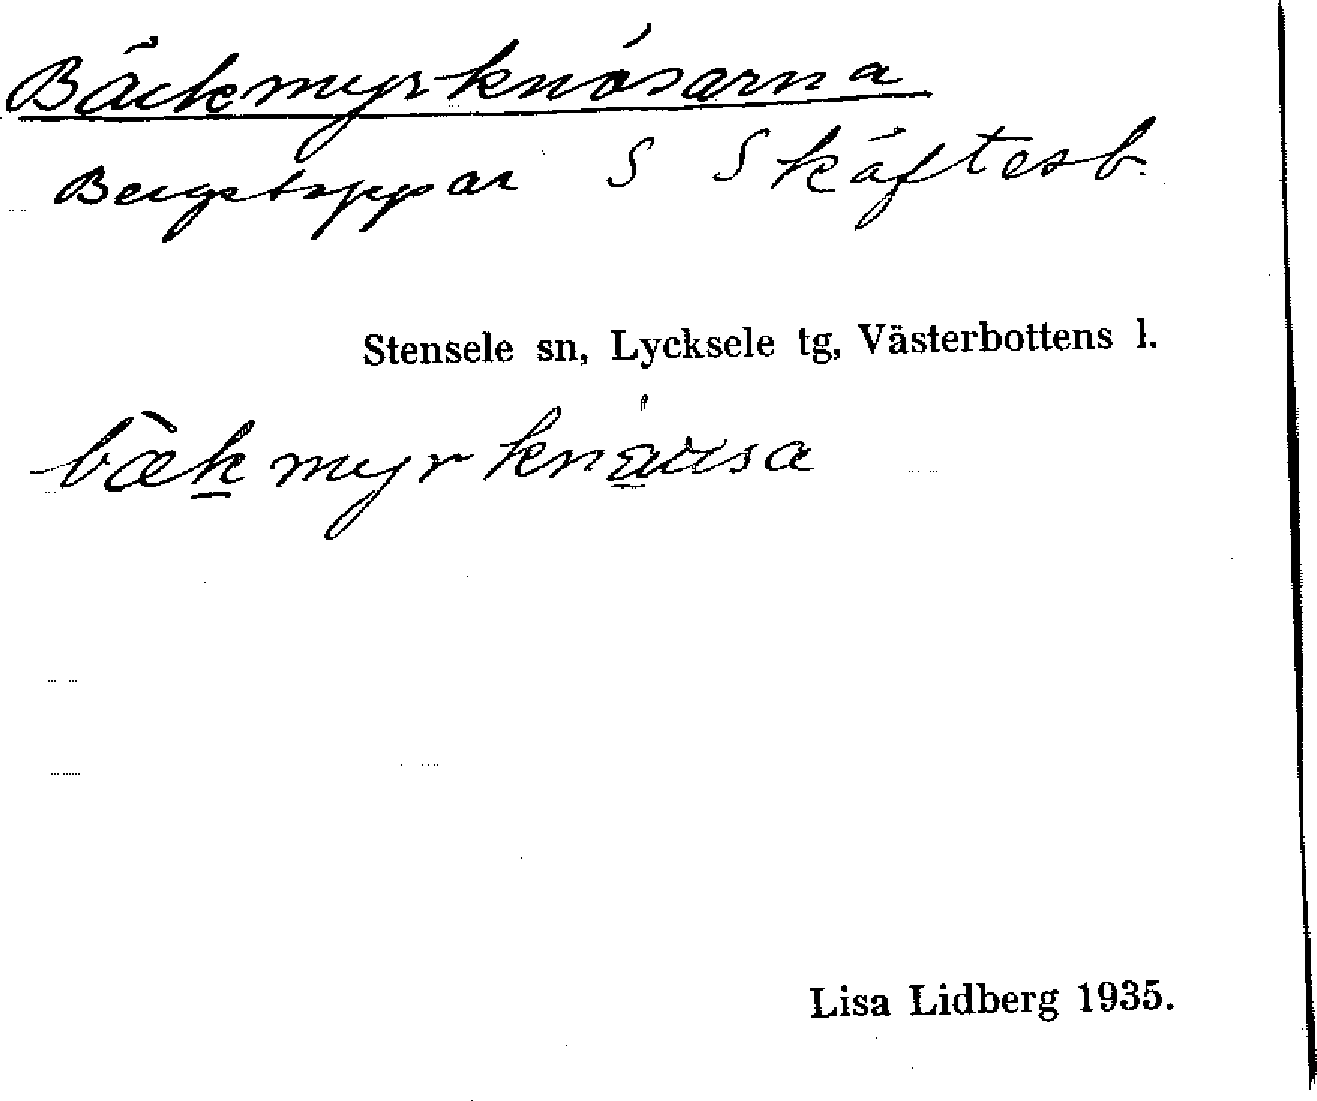 Bäckmyrknösarna
Bergstoppar S Skäftesb.
Stensele sn, Lycksele tg, Västerbottens l.
bæk myr knausa
Lisa Lidberg 1935.